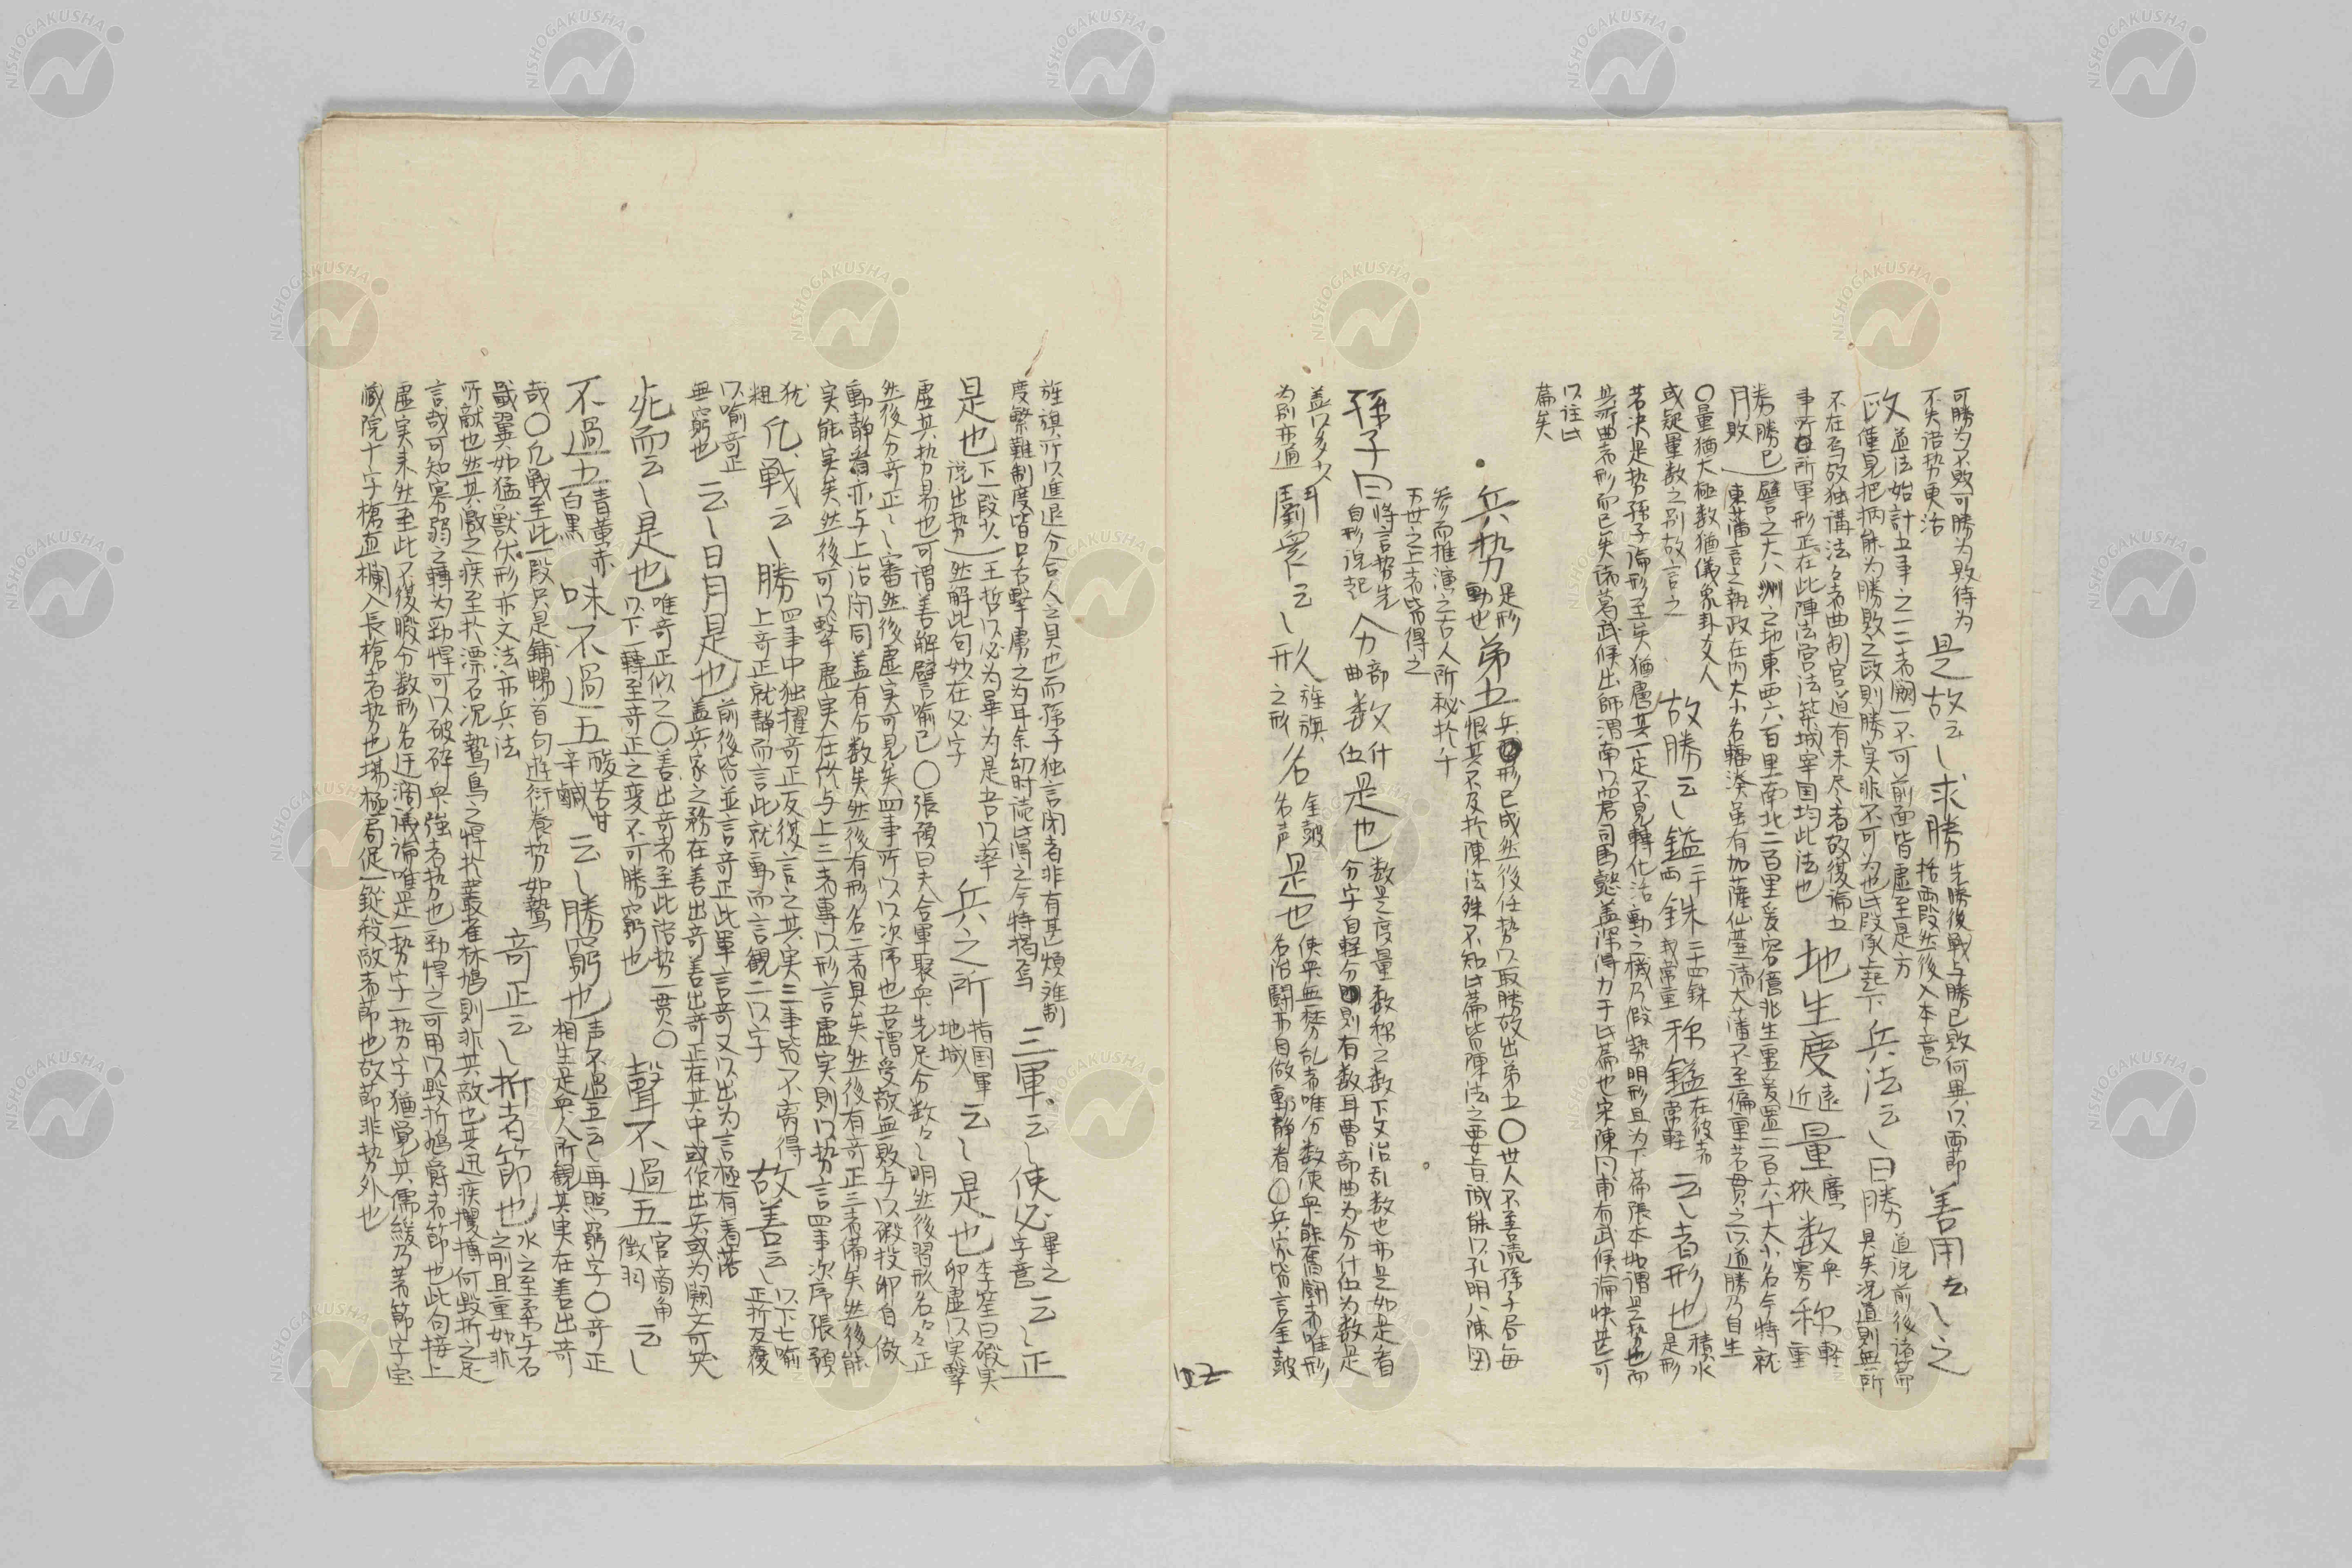 可勝為不敗可勝為敗待為
不失诰势更活
是故云〻求勝
先勝後戦与勝已敗何異以両節
括両段然後入本意
善用云〻之
政
道説前後諸節
僅見把柄能為勝敗之政則勝実非不可為也此段承上起下
兵法云〻曰勝
具矣況道則無所
不在焉故独講法〻者曲制官道有未尽者故復論五
事所軍形正在此陣法宮法築城宰国均此法也
地生度
遠近
量
廣狹
数
衆寡
称
軽重
勝
勝已
月敗
譬之大八洲之地東西六百里南北二百里爰容億兆生霊爰置二百六十大小名今特就
東藩言之執政在内大小名輻湊虽有加薩仙臺諸大藩不至偏重若貫之以道勝乃自生
〇量猶大極数猶儀象卦爻人
或疑量数之別故言之
故勝云〻鎰
二十両
銖
二十四銖
我常重
称鎰
在彼者
常軽
云〻者形也
積水
是形
若决是势孫子論形至矣猶慮其一定不見轉化活動之機乃假势明形且为下篇張本地謂是势也而
其所曲者形而已矣諸葛武候出師渭南以當司馬懿盖深得力于此篇也宋陳同甫有武候論快甚可
以注此
篇矣
兵势
是形
動也
第五
兵形已成然後任势以取勝故出第五〇世人不善読孫子居毎
恨其不及於陳法殊不知此篇皆陳法之要旨诚能以孔明八陳図
参而推演之古人所秘於千
万世之上者皆得之
孫子曰
将言势先
自形说起
分
部曲
数
什伍
是也
数是度量数称之数下文治乱数也亦是如是看
分字自軽分則有数耳曹部曲为分什伍为数是
盖以多少
为別亦通
鬥衆云〻形
旌旗
之形
名
金鼓
名声
是也
使衆無棼乱者唯分数使衆能奮闘者唯形
名治闘两目做動静看〇兵家皆言金鼓
旌旗所以進退分合人之具也而孫子独言闭者非有甚煩难制
度繁難制度皆只名擊虜之为耳余幼时读此得之今特揭焉
三軍云〻使必
畢之
字意
云〻正
是也
下一段火
说出势
王晳以必为畢为是吾以莘
然解此句妙在必字
兵之所
指国軍
地城
云〻是也
李筌曰碬实
卵虚以实擊
虚其势易也可谓善解譬喻已〇張預曰夫合軍聚衆先定分数〻〻明然後習形名〻〻正
然後分奇正〻〻審然後虚実可見矣四事所以次序也吾谓受敵無敗与以碬投卵自做
動静看亦与上治闭同盖有分数矣然後有形名二者具矣然後有奇正三者備矣然後能
実能实矣然後可以擊虚実在作与上三者專以形言虚実則以势言四事次序張預
犹
粗
凡戦云〻勝
四事中独擢奇正反復言之其実三事皆不离得
上奇正就静而言此就動而言観二以字
故善云〻
以下七喻
正折反覆
以喻奇正
無窮也
云〻日月是也
前後皆並言奇正此單言奇又以出为言極有着落
盖兵家之務在善出奇善出奇正在其中或作出兵或为闕文可哭
死而云〻是也
唯奇正似之〇善出奇者至此诰势一貫〇
以下一轉至奇正之変不可勝窮也
聲不過五
宮商角
徵羽
云〻
不過五
青黄赤
白黒
味不過五
酸苦甘
辛鹹
云〻勝窮也
声不過五云〻再照窮字〇奇正
相生是衆人所観其実在善出奇
哉〇凡戦至此一段只是鋪暢首句遊衍養势如鷙
戢翼如猛獣伏形亦文法亦兵法
奇正云〻折者節也
水之至柔与石
之剛且重如非
所敵也然其激之疾至於漂石况鷙鳥之悍於叢雀林鳩則非其敵也其迅疾攫搏何毀折之足
言哉可知寡弱之轉为勁悍可以破碎衆強者势也勁悍之可用以毀折鳩爵者節也此句接上
虚実未然至此不復暇分数形名迂濶議論唯是一势字一势字猶覺其儒緩乃著節字宝
蔵院十字槍直欄入長槍者势也場極局促一鋌殺敵者節也故節非势外也